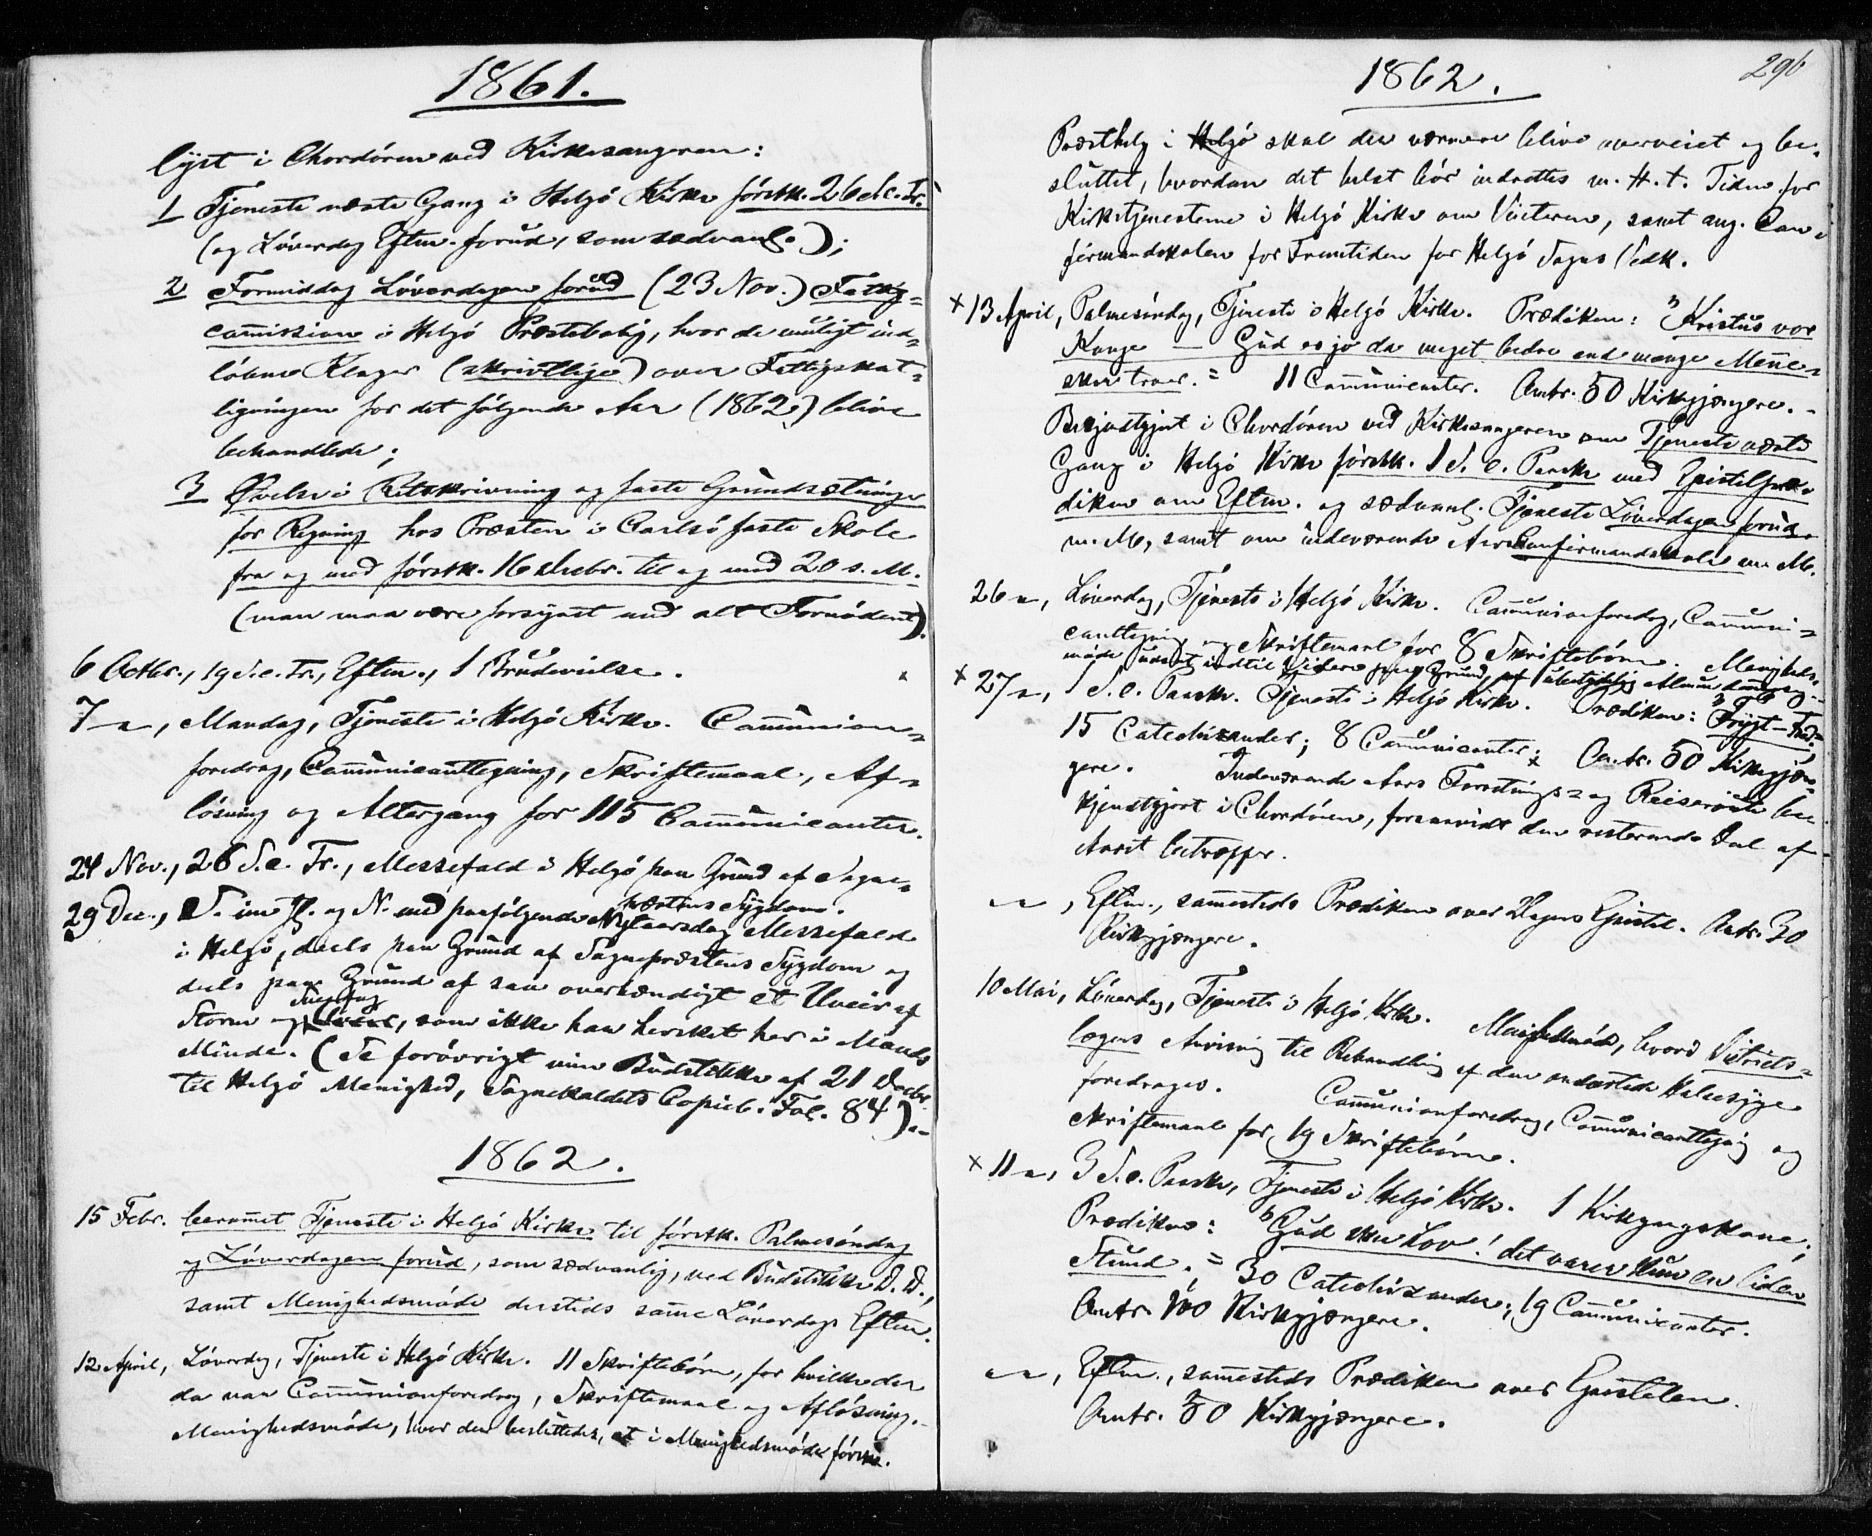 1861.
lyst i Chordören ved Kirkesangeren:
1 Tjeneste næste Gang i Helgö Kirke förstk. 26 de S. e. Tr.
(og Löverdag Eftm. forud, som sædvanl.);
2 Formiddag Löverdagen forud (23 Nov.) Fattig=
commission i Helgö Præstebolig, hvor de muligt ind=
löbne Klager (skriftlige) over Fattigskat=
ligningen for det fölgende Aar (1862) blive
behandlede;
3 Övelse i Retskrivning og faste Grundsætninger
for Regning hos Præsten i Carlsö faste Skole
fra og med förstk. 16 Octbr. til og med 20 s. M.
(man maa være forsynet med alt Fornödent).
6 Octbr., 19 S. e. Tr., Eftm., 1 Brudevielse.
7 –, Mandag, Tjeneste i Helgö Kirke. Communion=
foredrag, Communicanttegning, Skriftemaal, Af=
lösning og Altergang for 115 Communicanter.
24 Nov., 26 S. e. Tr., Messefald i Helgö paa Grund af Sogne=
præstens Sygdom.
29 Dec., S. im. J. og N. med paafölgende Nytaarsdag Messefald
i Helgö, deels paa Grund af Sognepræstens Sygdom og
deels paa Grund af saa overhændigt et Uveir af
Storm og Snefog, som ikke har hersket her i Mands
Minde. (Se forövrigt min Budstikke af 21 Decbr.
til Helgö Menighed, Sognekaldets Copieb. Fol. 84).–
1862.
15 Febr. berammet Tjeneste i Helgö Kirke til förstk. Palmesöndag
og Löverdagen forud, som sædvanlig, ved Budstikke D. D.,
samt Menighedsmöde dersteds samme Löverdags Eftm.
12 April, Löverdag, Tjeneste i Helgö Kirke. 11 Skriftebörn, for hvilke der
da var Communionforedrag, Skriftemaal og Aflösning.
Menighedsmöde, hvor der besluttedes, at i Menighedsmöde
296
1862.
Præsthelg i Helgö skal der nærmere blive overveiet og be=
sluttet, hvordan det helst bör indrettes m. H. t. Tiden for
Kirketjenesterne i Helgö Kirke om Vinteren, samt ang. Con=
firmandskolen for Fremtiden for Helgö Sogns Vedk.
× 13 April, Palmesöndag, Tjeneste i Helgö Kirke. Prædiken: "Kristus vor
Konge — Gud er jo da meget bedre end mange Menne=
sker troer." 11 Communicanter. Omtr. 50 Kirkegjængere.
Bekjendtgjort i Chordören ved Kirkesangeren om Tjeneste næste
Gang i Helgö Kirke förstk. 1 S. e. Paaske med Epistelpræ=
diken om Eftm. og sædvanl. Tjeneste Löverdagen forud
m. M., samt om indeværende Aars Confirmandskole m. M.
26 –, Löverdag, Tjeneste i Helgö Kirke. Communionforedrag, Communi=
canttegning og Skriftemaal for 8 Skriftebörn. Menigheds=
möde udsat indtil Videre paa Grund af
× 27 –, 1 S. e. Paaske. Tjeneste i Helgö Kirke. Prædiken: "Frygt – Fred."
15 Catechizander; 8 Communicanter; Omtr. 50 Kirkegjæn=
gere. Indeværende Aars Forretnings= og Reiseroute be=
kjendtgjort i Chordören, forsaavidt den resterende Deel af
Aaret betræffer.
– –, Eftm., sammesteds Prædiken over Dagens Epistel. Omtr. 30
Kirkegjængere.
10 Mai, Löverdag, Tjeneste i Helgö Kirke. Menighedsmöde, hvori Districts=
lægens Anvisning til Behandling af den ondartede Halssyge
foredrages. Communionforedrag, Communicanttegning og
Skriftemaal for 19 Skriftebörn.
× 11 –, 3 S. e. Paaske, Tjeneste i Helgö Kirke. 1 Kirkegangskone;
Prædiken: "Gud skee Lov! det varer kun en liden
Stund." 30 Catechizander; 19 Communicanter.
Omtr. 100 Kirkegjængere.
– –, Eftm., sammesteds Prædiken over Epistelen.
Omtr. 50 Kirkegjængere.